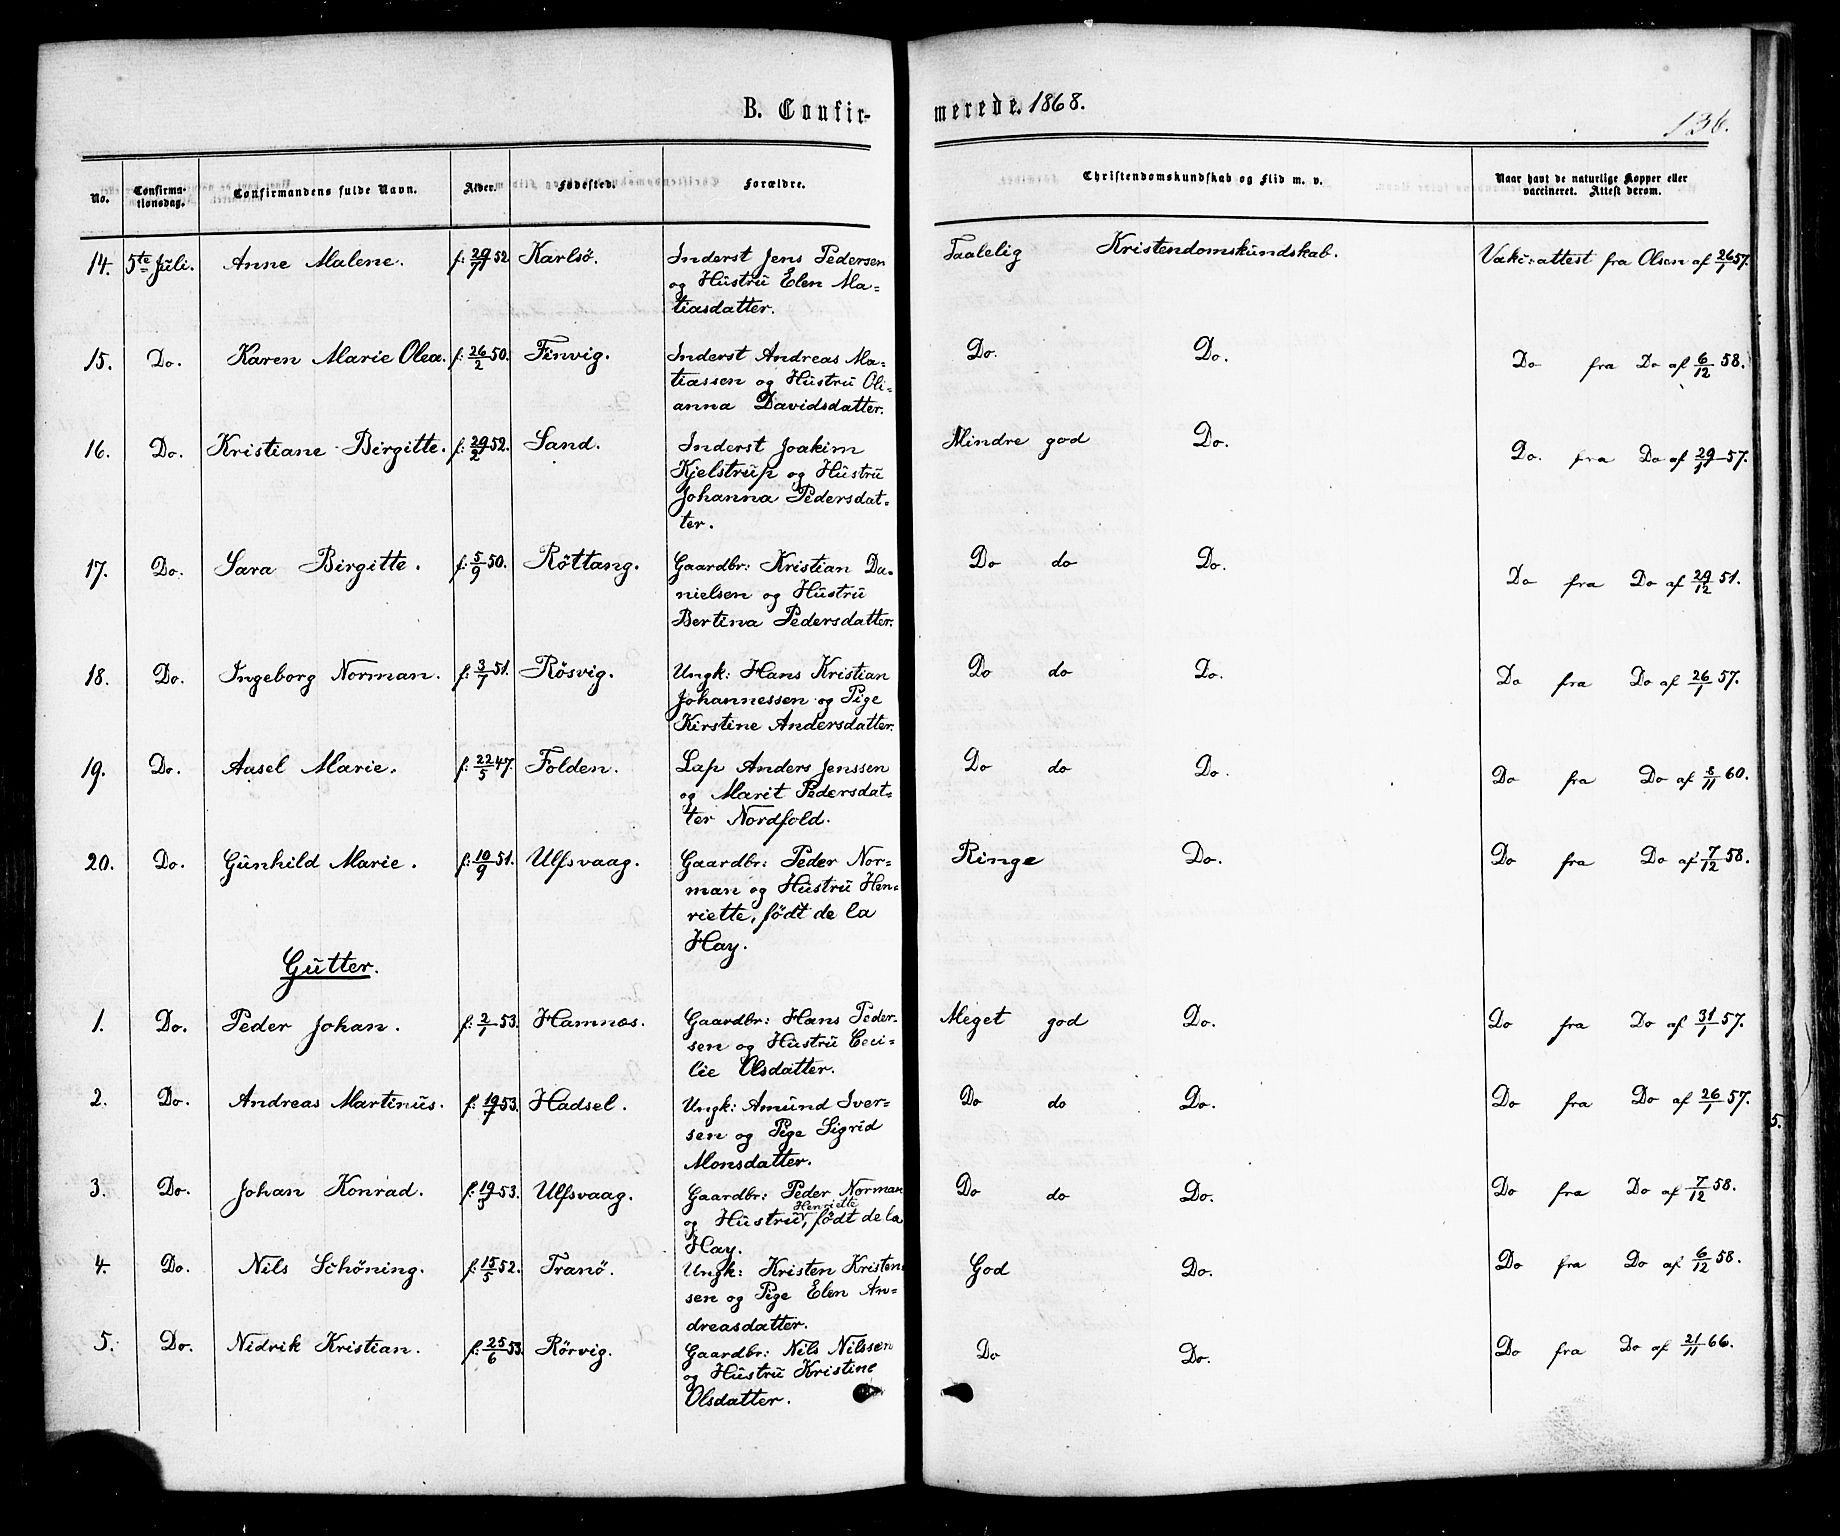 B. Confirmerede. 1868.
136.
No. Confirmationsdag. Confirmandens fulde Navn. Alder. Fødested. Forældre. Christendomskundskab og Flid m. v. Naar havt de naturlige Kopper eller vaccineret. Attest derom.
14. 5te Juli. Anne Malene. f: 29/7 52 Karlsö. Inderst Jens Pedersen Taalelig Kristendomskundskab. Vakc: attest fra Olsen af 26/1 57.
og Hustrü Elen Ma=
tiasdatter.
15. Do. Karen Marie Olea. f: 26/2 50. Finvig. Inderst Andreas Ma- Do. Do. Do fra Do af 6/12 58.
tiassen og Hustrü Oli-
anna Davidsdatter.
16. Do. Kristiane Birgitte. f: 29/2 52. Sand. Inderst Joakim Mindre god Do. Do. fra Do af 29/1 57.
Kjelstrup og Hüstrü
Johanna Pedersdat-
ter.
17. Do. Sara Birgitte. f: 5/9 50. Röttang. Gaardbr: Kristian Da- Do do Do. Do fra Do af 29/12 51.
nielsen og Hüstrü
Bertina Pedersdatter.
18. Do. Ingeborg Norman. f: 3/1 51. Rösvig. Ungk: Hans Kristian Do do Do. Do fra Do af 26/1 57.
Johannessen og Pige
Kirstine Andersdatter.
19. Do. Aasel Marie. f: 22/5 47. Folden. Lap Anders Jenssen Do do Do. Do fra Do af 8/11 60.
og Marit Pedersdat-
ter Nordfold.
20. Do. Günhild Marie. f: 10/9 51. Ulfsvaag. Gaardbr: Peder Nor- Ringe Do. Do fra Do af 7/12 58.
man og Hüstrü Hen-
riette, födt de la
Hay.
Gütter.
1. Do. Peder Johan. f: 2/1 53. Hamnæs. Gaardbr: Hans Peder- Meget god Do. Do fra Do af 31/1 57.
sen og Hüstrü Ceci-
lie Olsdatter.
2. Do. Andreas Martinüs. f: 19/7 53. Hadsel. Ungk: Amünd Iver- Do do Do. Do fra Do af 26/1 57.
sen og Pige Sigrid
Monsdatter.
3. Do. Johan Konrad. f: 19/3 53. Ulfsvaag. Gaardbr: Peder Norman Do do Do. Do fra Do af 7/12 58.
og Hüstrü Henriette, födt de la
Hay.
4. Do. Nils Schöning. f: 15/5 52. Tranö. Ungk: Kristen Kristen- God Do. Do fra Do af 6/12 58.
sen og Pige Elen An-
dreasdatter.
5. Do. Nidrik Kristian. f: 25/6 53. Rörvig. Gaardbr: Nils Nilssen Do Do. Do fra Do af 21/11 66.
og Hüstrü Kristine
Olsdatter.